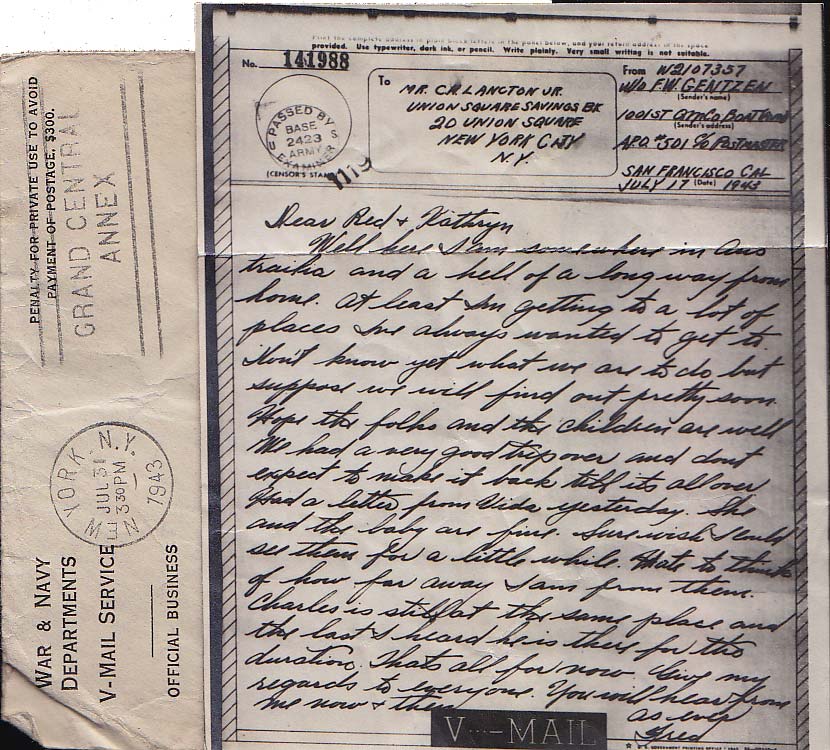 PENALTY FOR PRIVATE USE TO AVOID
PAYMENT OF POSTAGE, $300.
GRAND CENTRAL
ANNEX
YORK, N.Y.
JUL 31
3 30 PM
1943
WAR & NAVY
DEPARTMENTS
V-MAIL SERVICE
OFFICIAL BUSINESS
Print the complete address in plain block letters in the panel below, and your return address in the space
provided. Use typewriter, dark ink, or pencil. Write plainly. Very small writing is not suitable.
No. 141988
PASSED BY
BASE
2423
ARMY
EXAMINER
U S
(CENSOR'S STAMP)
1119
To
MR. C.R. LANGTON JR.
UNION SQUARE SAVINGS BK
20 UNION SQUARE
NEW YORK CITY
N.Y.
From W2107357
W/O F.W. GENTZEN
(Sender's name)
1001ST
(Sender's address)
APO #501 % POSTMASTER
SAN FRANCISCO CAL
JULY 17 (Date) 1943
Dear Red + Kathryn
Well here I am somewhere in Aus
tralia and a hell of a long way from
home. At least Im getting to a lot of
places Ive always wanted to get to.
Don't know yet what we are to do but
suppose we will find out pretty soon.
Hope the folks and the children are well
We had a very good trip over and dont
expect to make it back till its all over
Had a letter from Vida yesterday. She
and the baby are fine. Sure wish I could
see them for a little while. Hate to think
of how far away I am from them.
Charles is still at the same place and
the last I heard he is there for the
duration. Thats all for now. Give my
regards to everyone. You will hear from
me now + then
As ever
Fred
V···-MAIL